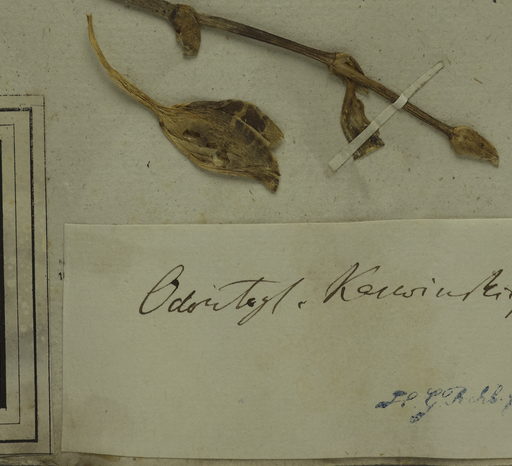 Odontogl. Karwinskii
Rchb. f